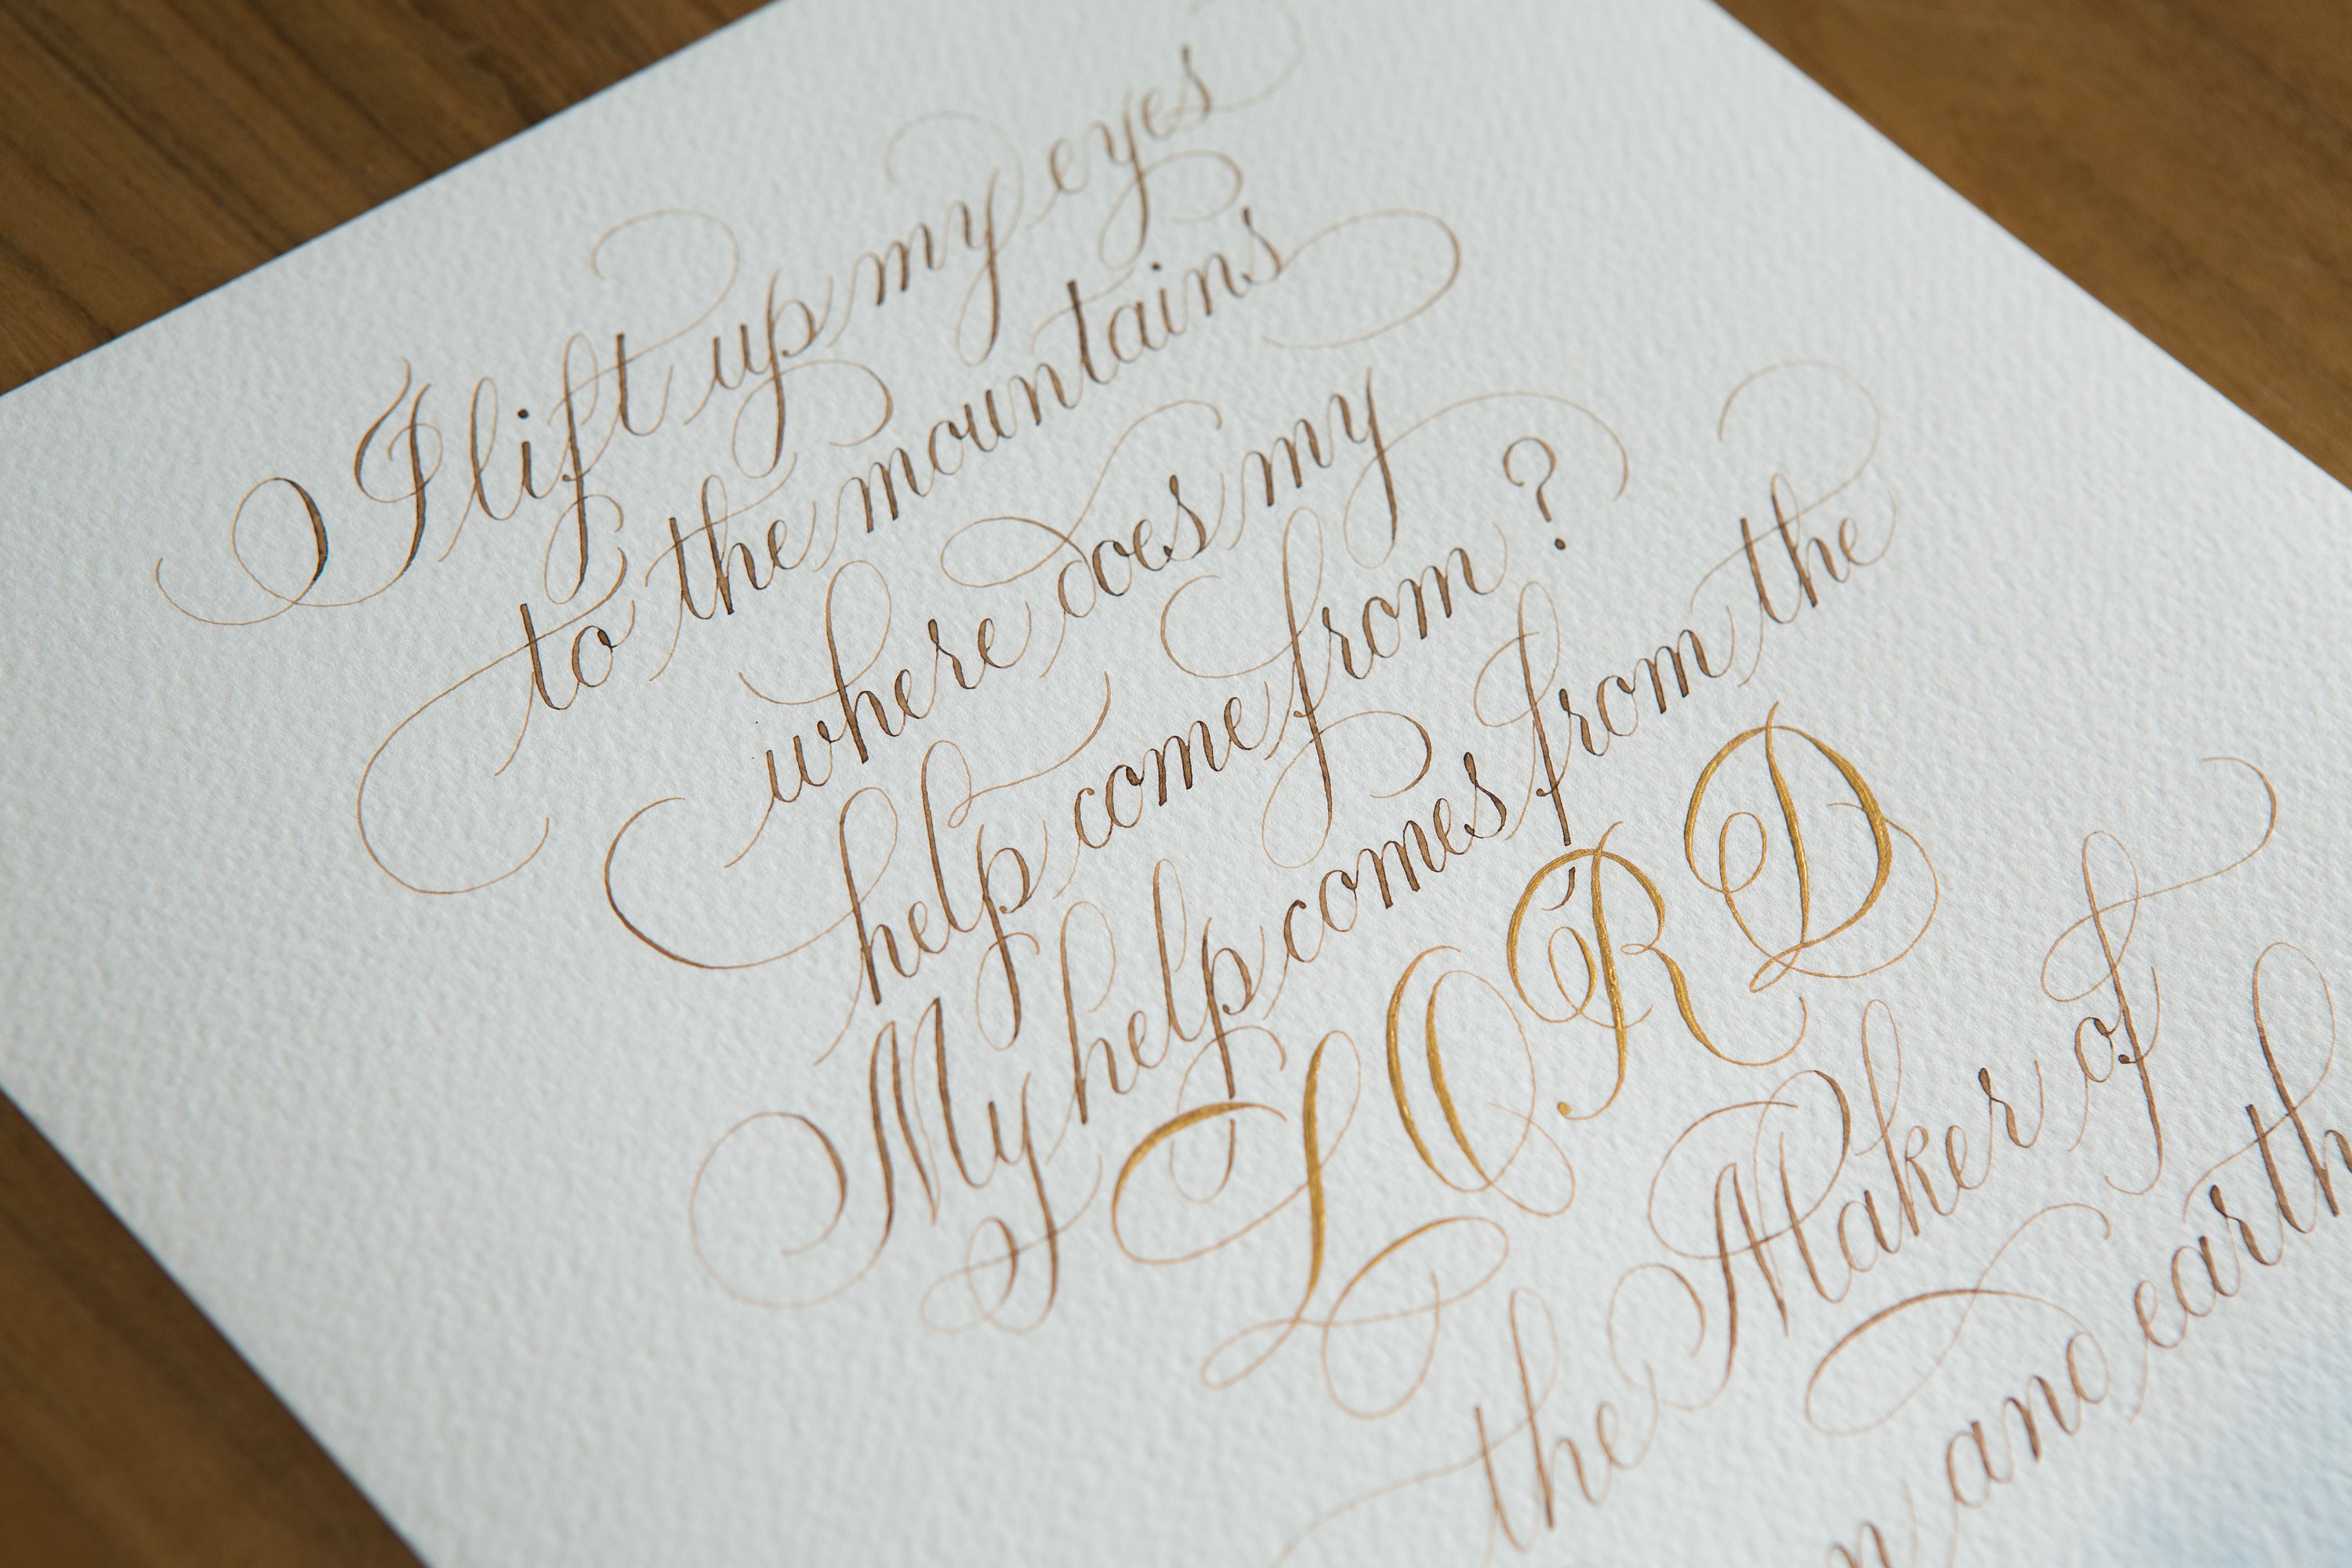 I lift up my eyes
to the mountains
where does my
help come from ?
My help comes from the
LORD
the Maker of
and earth